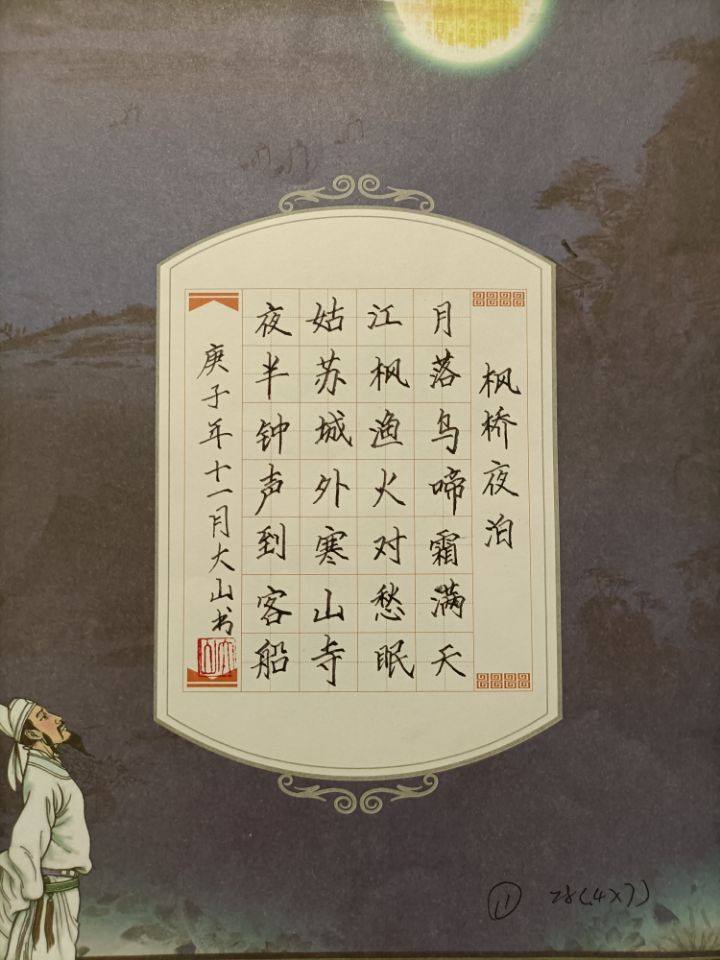 枫桥夜泊
月落乌啼霜满天
江枫渔火对愁眠
姑苏城外寒山寺
夜半钟声到客船
庚子年十一月大山书
11 28(4×7)